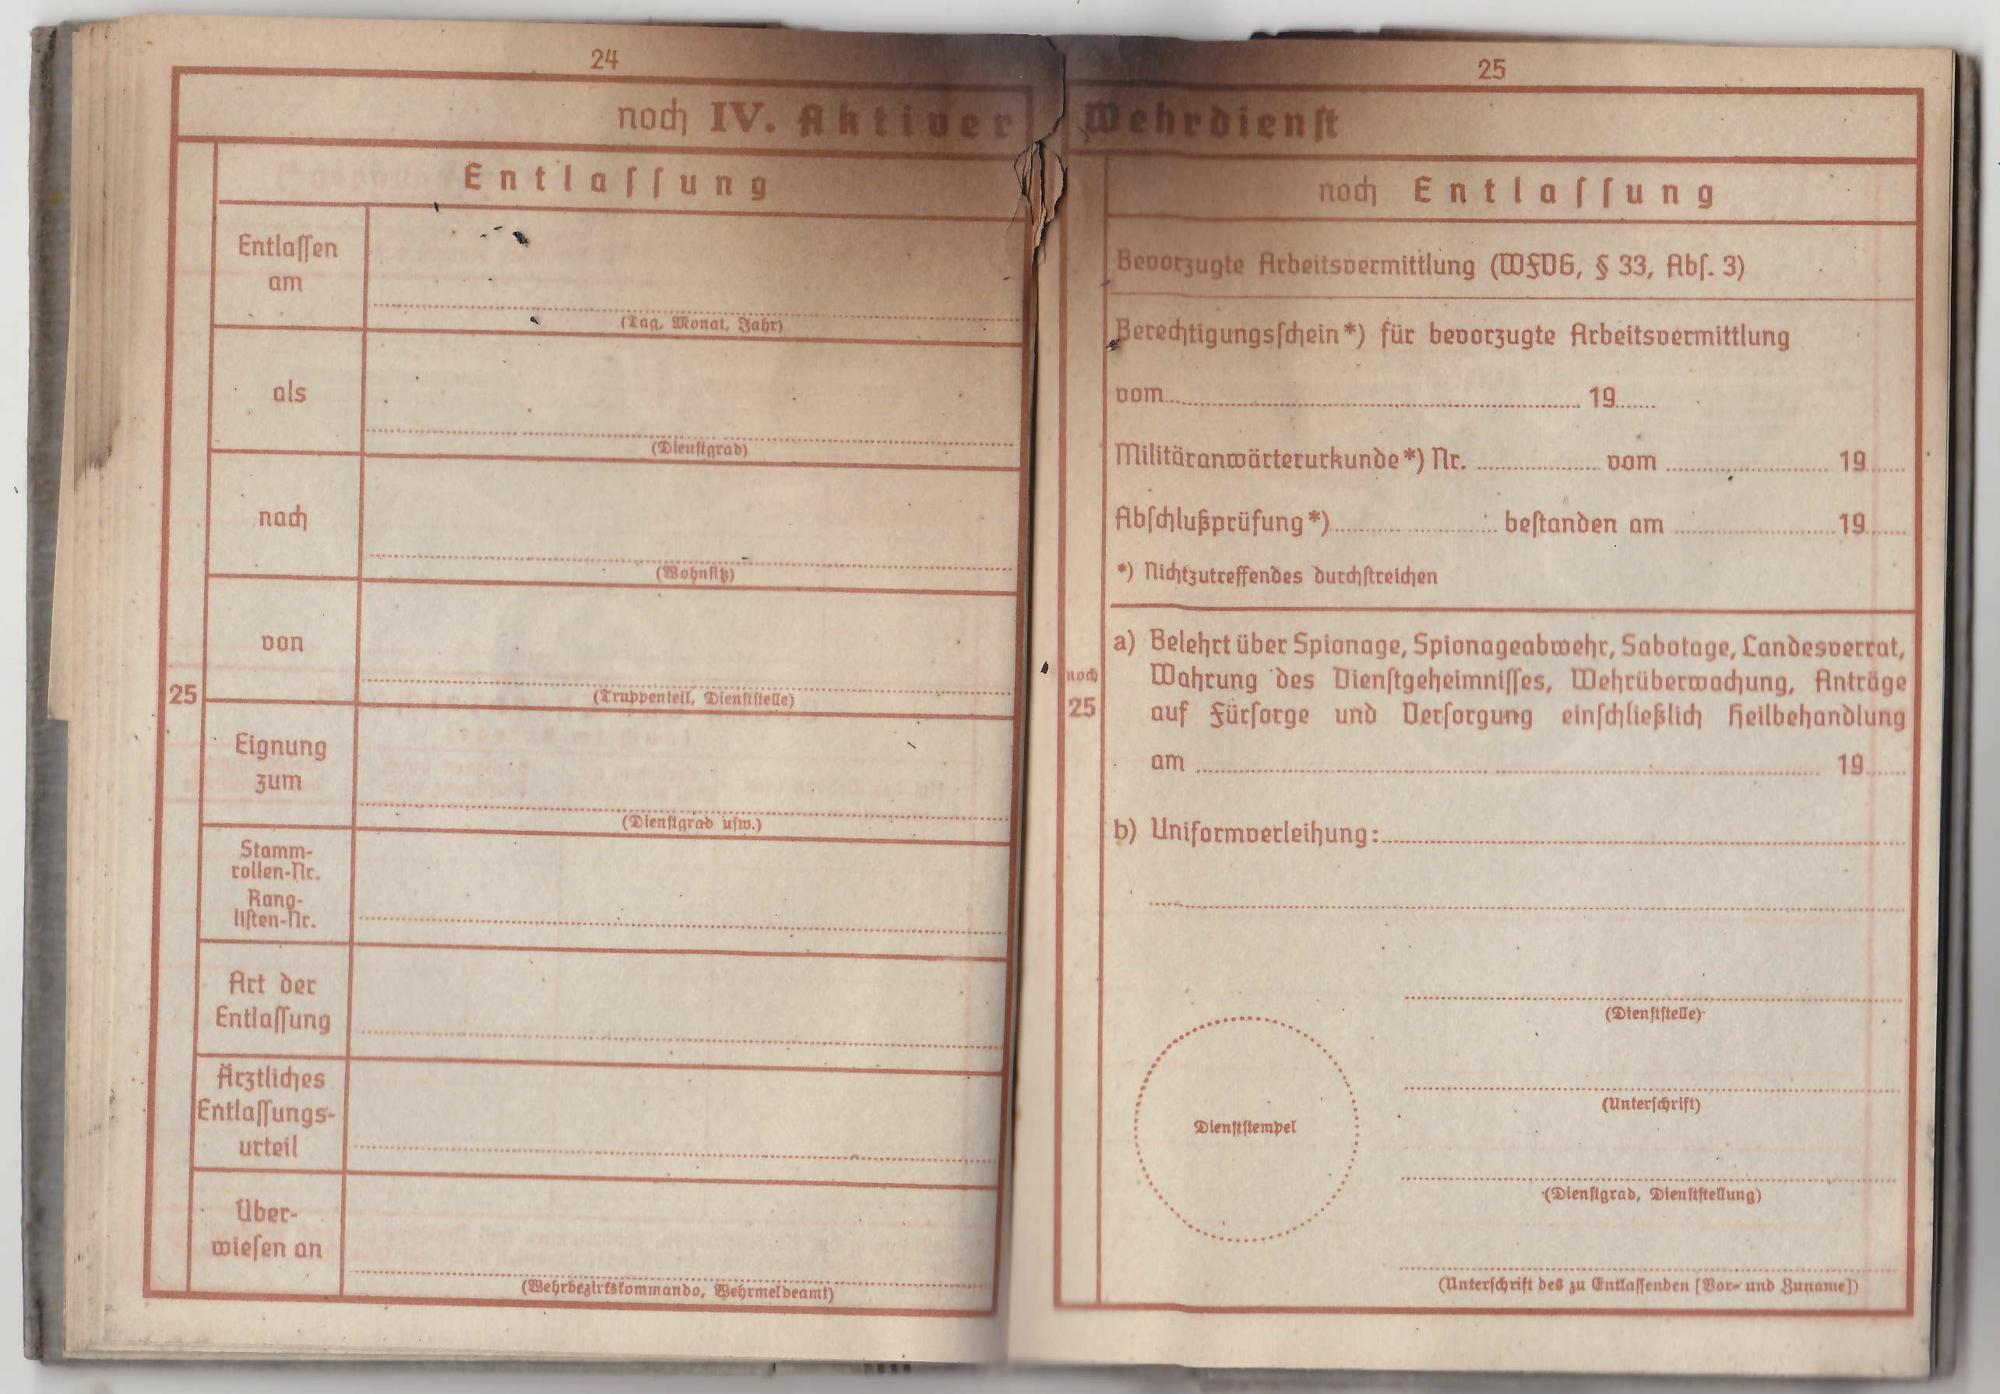 24
noch IV. Aktiver
Entlaſſung
Entlaſſen
am
(Tag, Monat, Jahr)
als
(Dienſtgrad)
nach
(Wohnſitz)
von
(Truppenteil, Dienſtſtelle)
25
Eignung
zum
(Dienſtgrad uſw.)
Stamm-
rollen-Nr.
Rang-
liſten-Nr.
Art der
Entlaſſung
Ärztliches
Entlaſſungs-
urteil
Über-
wieſen an
(Wehrbezirkskommando, Wehrmeldeamt)
25
Wehrdienſt
noch Entlaſſung
Bevorzugte Arbeitsvermittlung (WFVG, § 33, Abſ. 3)
Berechtigungsſchein*) für bevorzugte Arbeitsvermittlung
vom 19
Militäranwärterurkunde*) Nr. vom 19
Abſchlußprüfung*) beſtanden am 19
*) Nichtzutreffendes durchſtreichen
noch
25
a) Belehrt über Spionage, Spionageabwehr, Sabotage, Landesverrat,
Wahrung des Dienſtgeheimniſſes, Wehrüberwachung, Anträge
auf Fürſorge und Verſorgung einſchließlich Heilbehandlung
am 19
b) Uniformverleihung:
(Dienſtſtelle)
Dienſtſtempel
(Unterſchrift)
(Dienſtgrad, Dienſtſtellung)
(Unterſchrift des zu Entlaſſenden [Vor- und Zuname])